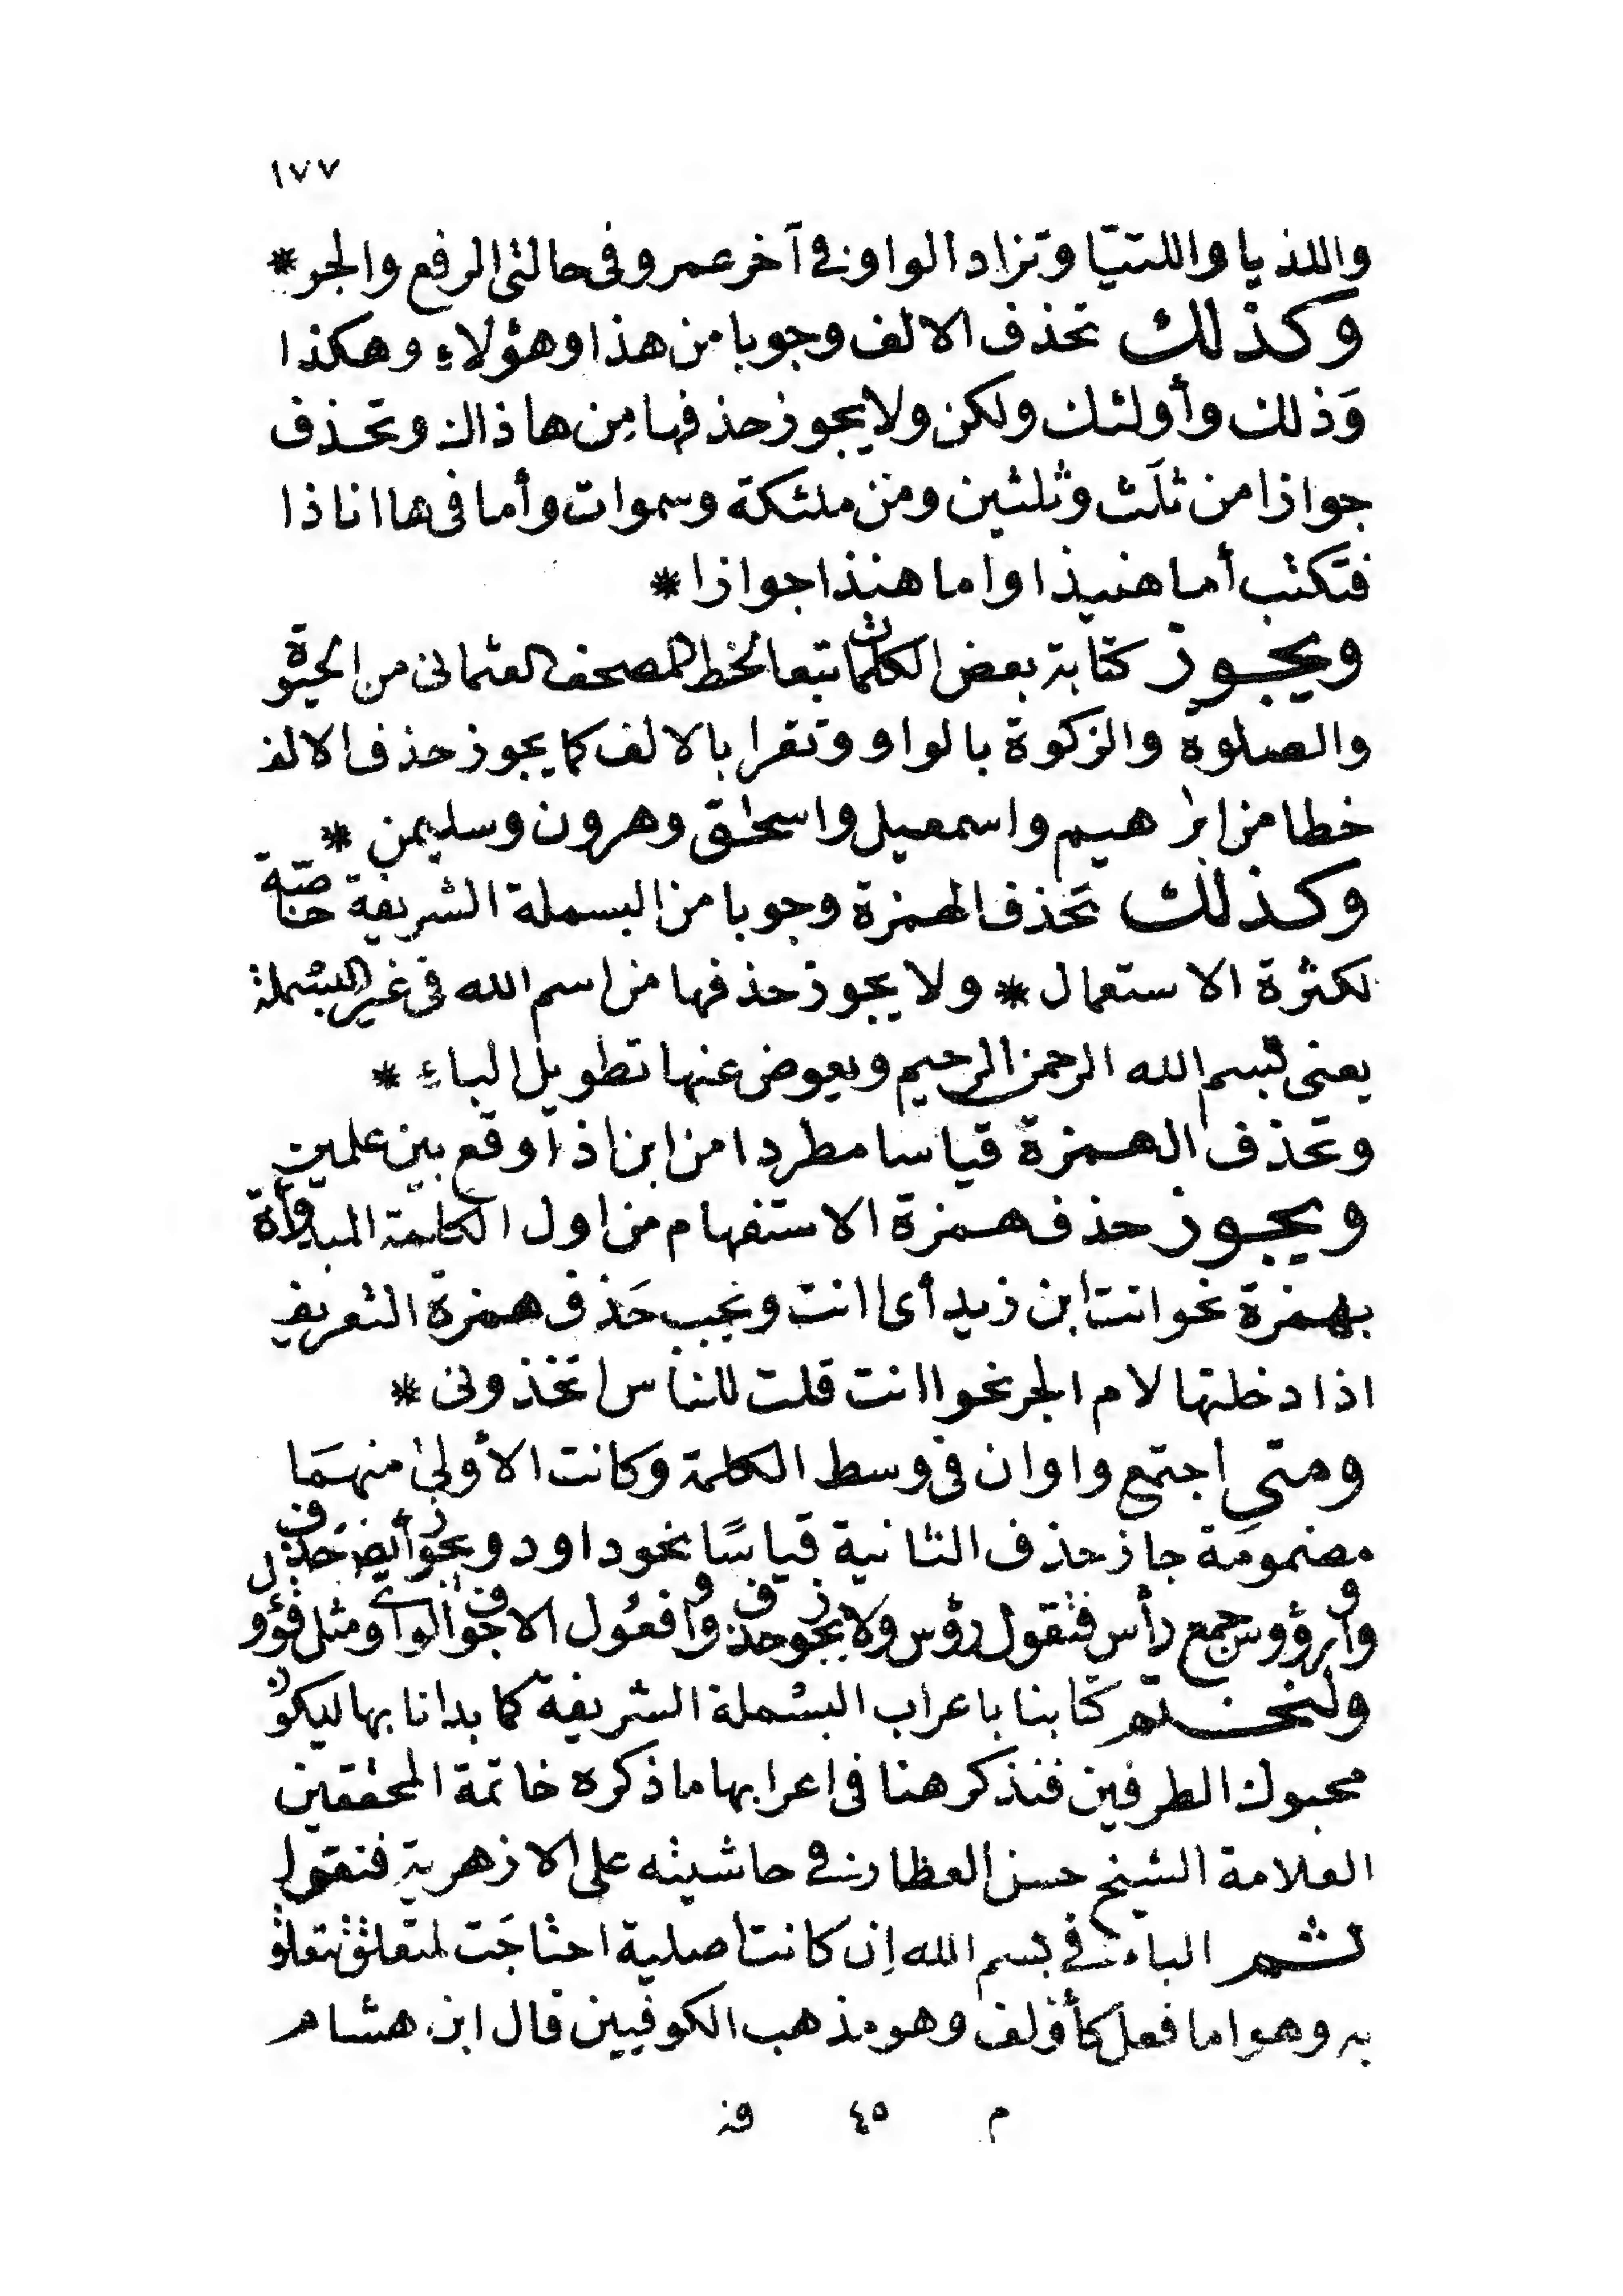 ١٧٧
واللذيا واللتيّا وتزاد الواو في آخر عمرو في حالتى الرفع والجر *
وكذلك تحذف الالف وجوبا من هذا وهؤلاء وهكذا
وَذلك وأولئك ولكن ولا يجوز حذفها مِن هاذاك وتحذف
جوازا من ثلَث وثلثين ومن ملئكة وسموات وأما فى ها انا ذا
فتكتب أما هنيذا واما هنذا جوازا *
ويجوز كتابة بعض الكلمات تبعا لخط المصحف العثمانى من الحيوة
والصلوة والزكوة بالواو وتقرا بالالف كما يجوز حذف الالف
خطا من ابرٰهيم واسمعيل واسحٰق وهرون وسليمن *
وكذلك تحَذف الهمزة وجوبا من البسملة الشريفة خاصّة
لكثرة الاستعمال * ولا يجوز حذفها من اسم الله فى غير البسملة
يعنى بسم الله الرحمن الرحيم ويعوض عنها تطويل الباء *
وتحذف الهمزة قياسا مطردا من ابن اذا وقع بين علمين
ويجوز حذف همزة الاستفهام من اول الكلمة المبدوأة
بهمزة نحو انت ابن زيد أى اانت ويجب حَذف همزة التعريف
اذا دخلتها لام الجر نحو اانت قلت للناس اتخذونى *
ومتى اجتمع واوان فى وسط الكلمة وكانت الأولىٰ منهمَا
مضمومَة جاز حذف الثانية قياسًا نحو داود ويجوز أيضا حَذف
واو رؤوس جمع رأس فتقول رؤس ولا يجوز حذف واو فعُول الاجوف الواوى ومثل قؤول
ولنختم كتابنا باعراب البسْملة الشريفة كما بدانا بها ليكون
محبوك الطرفين فنذكر هنا فى اعرابها ما ذكره خاتمة المحققين
العلامة الشيخ حسن العطار فى حاشيته على الازهرية فنقول
ثم الباء فى بسم الله اِن كانت اصلية احتاجَت لمتعلق تتعلق
به وهو اما فعل كأؤلف وهو مذهب الكوفيين قال ابن هشام
م ٤٥ فن